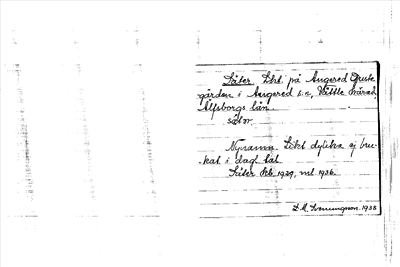 Säter Lht. på Angered
gården i Angered s:n, Vättle härad,
Älfsborgs län.
sätər
Nynamn. Likt dylika ej bru-
kat i dagl. tal.
Säter 1929, 1936.
D. M. Svenungsson. 1938